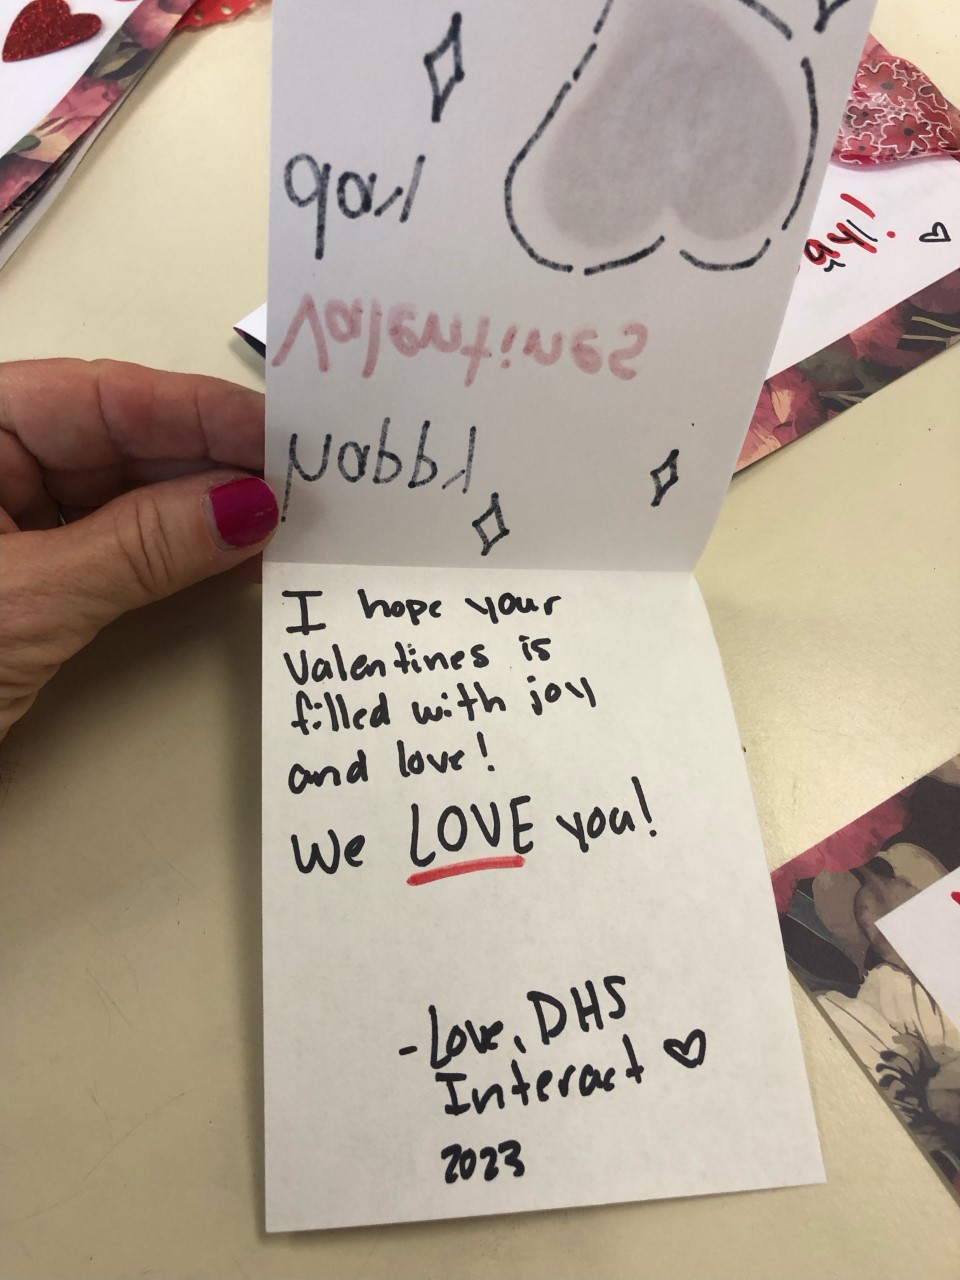 happy
Valentines
day
I hope your
Valentines is
filled with joy
and love!
We LOVE you!
-Love, DHS
Interact ♡
2023